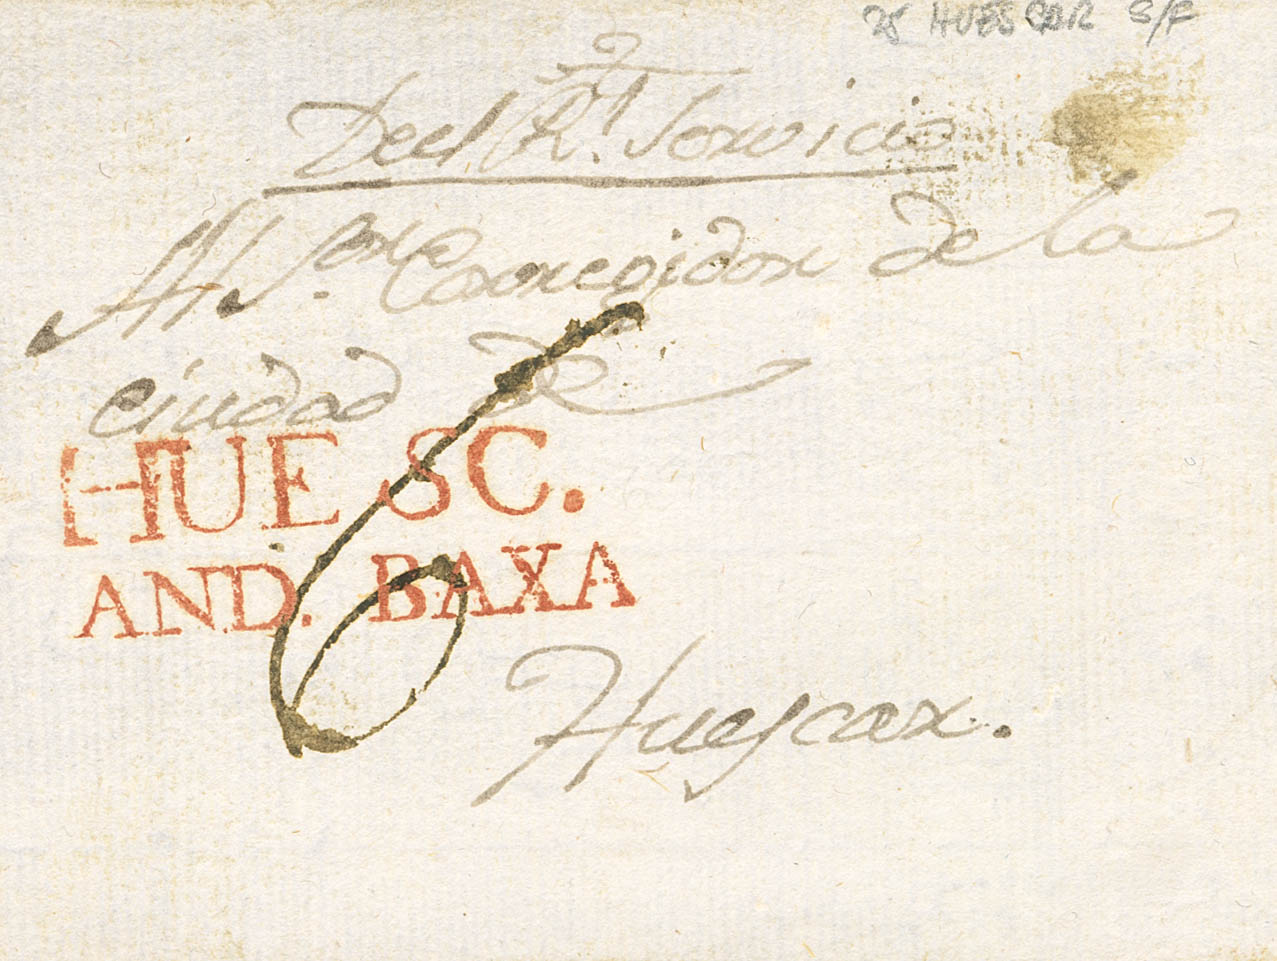 HUESCAR S/F
Del Rl. Servicio
Al Sor. Corregidor de la
ciudad de
HUESC.
AND. BAXA
6
Huescar.